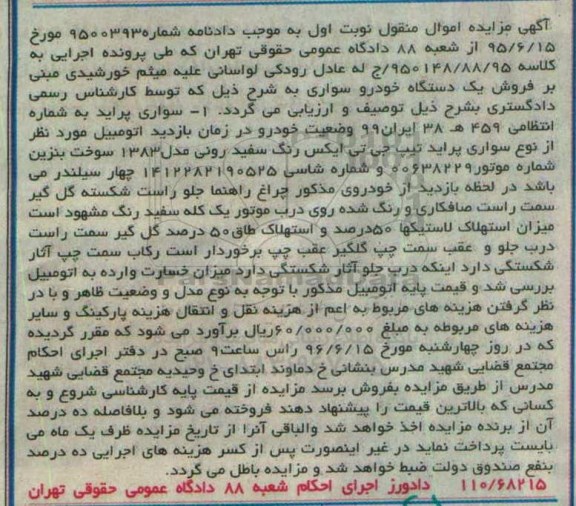 آگهی مزایده اموال منقول نوبت اول به موجب دادنامه شماره۹۵۰۰۳۹۳ مورخ
۹۵/۶/۱۵ از شعبه ۸۸ دادگاه عمومی حقوقی تهران که طی پرونده اجرایی به
کلاسه ۹۵۰۱۴۸/۸۸/۹۵/ج له عادل رودکی لواسانی علیه میثم خورشیدی مبنی
بر فروش یک دستگاه خودرو سواری به شرح ذیل که توسط کارشناس رسمی
دادگستری بشرح ذیل توصیف و ارزیابی می گردد. ۱- سواری پراید به شماره
انتظامی ۴۵۹ هـ ۳۸ ایران۹۹ وضعیت خودرو در زمان بازدید اتومبیل مورد نظر
از نوع سواری پراید تیپ جی تی ایکس رنگ سفید رونی مدل۱۳۸۳ سوخت بنزین
شماره موتور۰۰۶۳۸۲۲۹ و شماره شاسی ۱۴۱۲۲۸۲۱۹۰۵۲۵ چهار سیلندر می
باشد در لحظه بازدید از خودروی مذکور چراغ راهنما جلو راست شکسته گل گیر
سمت راست صافکاری و رنگ شده روی درب موتور یک کله سفید رنگ مشهود است
میزان استهلاک لاستیکها ۵۰درصد و استهلاک طاق۵۰ درصد گل گیر سمت راست
درب جلو و عقب سمت چپ گلگیر عقب چپ برخوردار است رکاب سمت چپ آثار
شکستگی دارد اینکه درب جلو آثار شکستگی دارد میزان خسارت وارده به اتومبیل
بررسی شد و قیمت پایه اتومبیل مذکور با توجه به نوع مدل و وضعیت ظاهر و با در
نظر گرفتن هزینه های مربوط به اعم از هزینه نقل و انتقال هزینه پارکینگ و سایر
هزینه های مربوطه به مبلغ ۶۰/۰۰۰/۰۰۰ریال برآورد می شود که مقرر گردیده
که در روز چهارشنبه مورخ ۹۶/۶/۱۵ راس ساعت۹ صبح در دفتر اجرای احکام
مجتمع قضایی شهید مدرس بنشانی خ دماوند ابتدای خ وحیدیه مجتمع قضایی شهید
مدرس از طریق مزایده بفروش برسد مزایده از قیمت پایه کارشناسی شروع و به
کسانی که بالاترین قیمت را پیشنهاد دهند فروخته می شود و بلافاصله ده درصد
آن از برنده مزایده اخذ خواهد شد والباقی آنرا از تاریخ مزایده ظرف یک ماه می
بایست پرداخت نماید در غیر اینصورت پس از کسر هزینه های اجرایی ده درصد
بنفع صندوق دولت ضبط خواهد شد و مزایده باطل می گردد.
۱۱۰/۶۸۲۱۵ دادورز اجرای احکام شعبه ۸۸ دادگاه عمومی حقوقی تهران